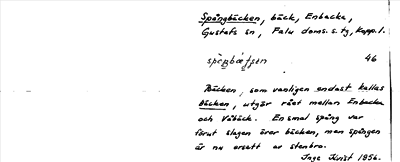 Spångbäcken, bäck, Enbacka,
Gustafs sn, Falu doms. s. tg, Kopp. l.
46
Bäcken, som vanligen endast kallas
Bäcken, utgör rået mellan Enbacka
och Våbäck. En smal spång var
förut slagen över bäcken, men spången
är nu ersatt av stenbro.
Inge Kvist 1956.